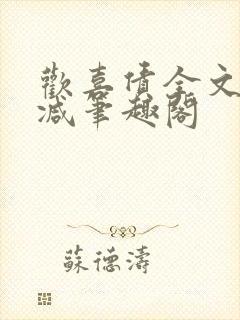 歡喜債全文
减筆趣閣
蘇德濤